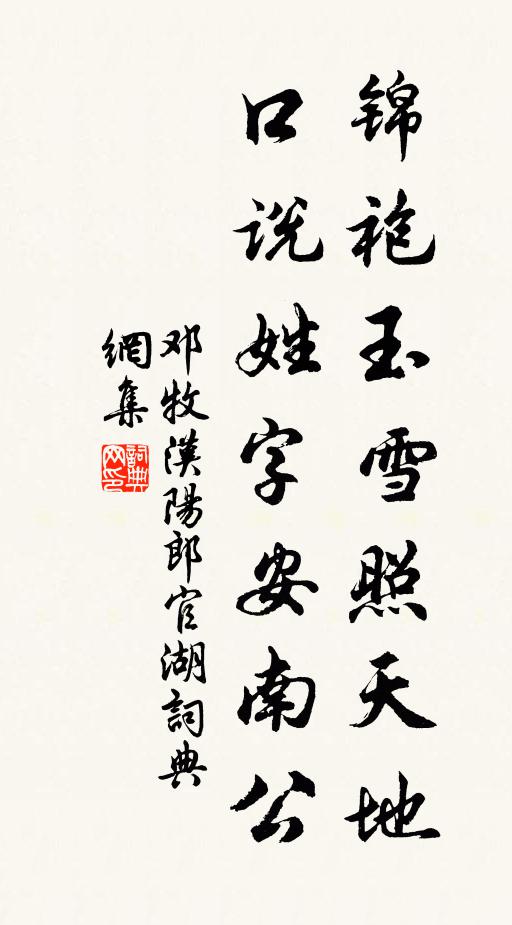 锦袍玉雪照天地
口说姓字安南公
邓牧漢陽郎官湖詞典
網集
詞典
网印